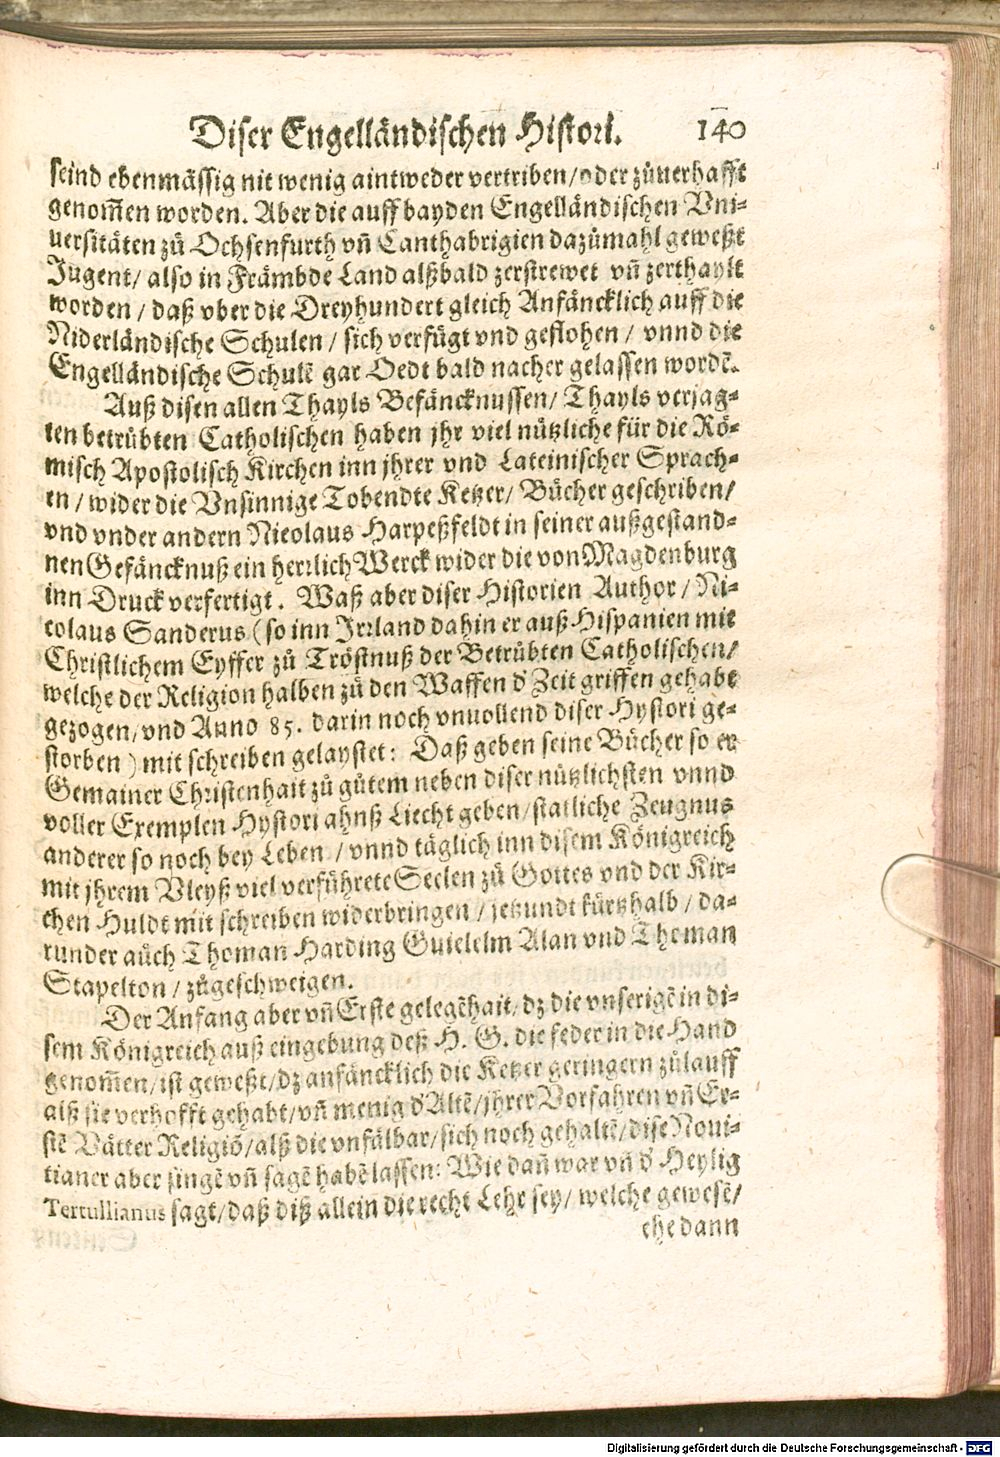 Diser Engelländischen Histori. 140
seind ebenmässig nit wenig aintweder vertriben/oder zůuerhafft
genom̃en worden. Aber die auff bayden Engelländischen Vni-
uersitäten zů Ochsenfurth vñ Canthabrigien dazůmahl geweßt
Jugent/ also in Främbde Land alßbald zerstrewet vñ zerthaylt
worden / daß vber die Dreyhundert gleich Anfäncklich auff die
Niderländische Schulen / sich verfügt vnd geflohen / vnnd die
Engelländische Schulẽ gar Oedt bald nacher gelassen wordẽ.
Auß disen allen Thayls Befäncknussen/ Thayls verjag-
ten betrübten Catholischen haben jhr viel nützliche für die Rö-
misch Apostolisch Kirchen inn jhrer vnd Lateinischer Sprach-
en / wider die Vnsinnige Tobendte Ketzer/ Bücher geschriben/
vnd vnder andern Nicolaus Harpeßfeldt in seiner außgestand-
nen Gefäncknuß ein herrlich Werck wider die von Magdenburg
inn Druck verfertigt. Waß aber diser Historien Author / Ni-
colaus Sanderus (so inn Irrland dahin er auß Hispanien mit
Christlichem Eyffer zů Tröstnuß der Betrübten Catholischen/
welche der Religion halben zů den Waffen d' Zeit griffen gehabt
gezogen/vnd Anno 85. darin noch vnuollend diser Hystori ge-
storben ) mit schreiben gelaystet: Daß geben seine Bücher so er
Gemainer Christenhait zů gůtem neben diser nützlichsten vnnd
voller Exemplen Hystori ahnß Liecht geben/statliche Zeugnus
anderer so noch bey Leben / vnnd täglich inn disem Königreich
mit jhrem Vleyß viel verführete Seelen zů Gottes vnd der Kir-
chen Huldt mit schreiben widerbringen / jetzundt kürtzhalb / da-
runder aůch Thoman Harding Guielelm Alan vnd Thoman
Stapelton / zůgeschweigen.
Der Anfang aber vñ Erste gelegẽhait/dz die vnserigẽ in di-
sem Königreich auß eingebung deß H. G. die feder in die Hand
genom̃en/ist geweßt/dz anfäncklich die Ketzer geringern zůlauff
alß sie verhofft gehabt/vñ menig d' Altẽ/jhrer Vorfahren vñ Er-
stẽ Vätter Religiõ/alß die vnfälbar/sich noch gehaltẽ/dise Noui-
tianer aber singẽ vñ sagẽ habẽ lassen: Wie dañ war vñ d' Heylig
Tertullianus sagt/daß diß allein die recht Lehr sey/ welche gewesẽ/
ehe dann
Digitalisierung gefördert durch die Deutsche Forschungsgemeinschaft - DFG